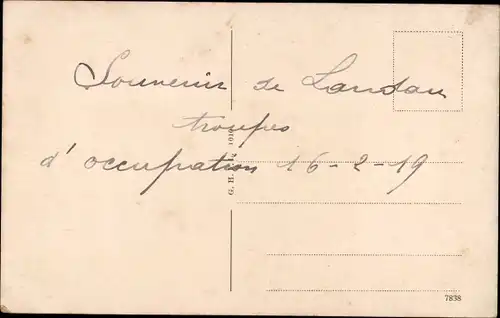 Souvenir de Landau
troupes
d'occupation 16-2-19
7838